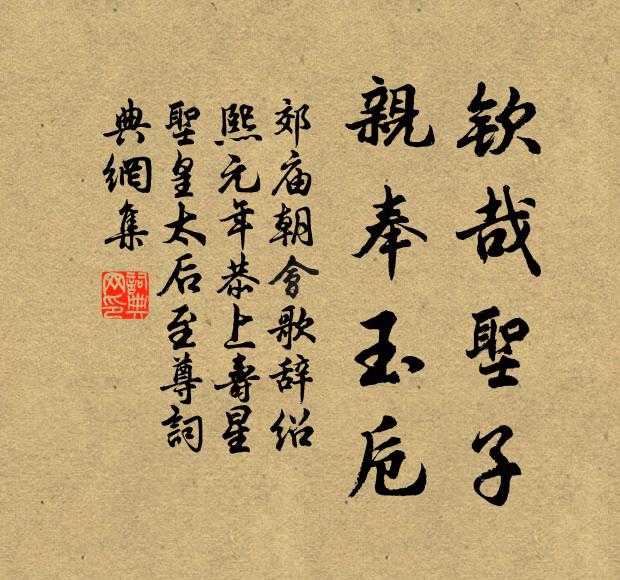 欽哉聖子
親奉玉卮
郊庙朝會歌辞绍
熙元年恭上壽星
聖皇太后至尊詞
典網集
詞典网印